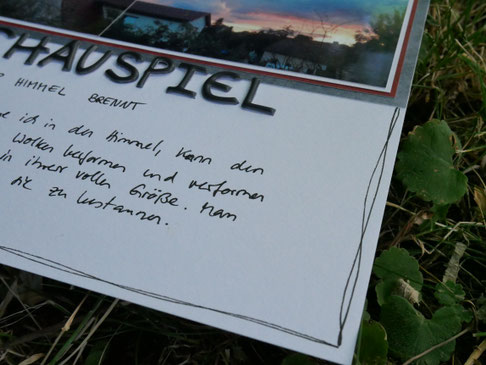 CHAUSPIEL
HIMMEL BRENNT
ich in den Himmel, kann den
Wolken verformen und verformen
in ihrer vollen Größe. Man
sie zu bestaunen.